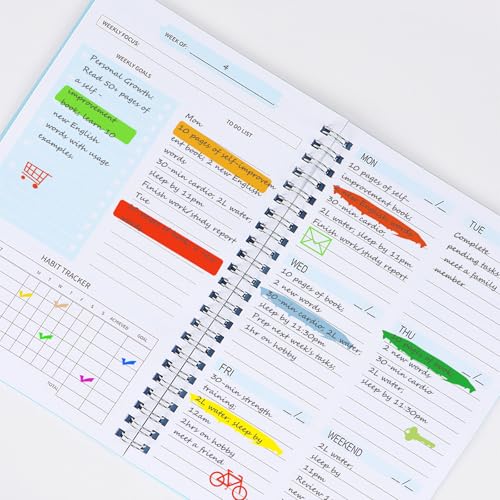 WEEKLY FOCUS:
WEEK OF:
4
WEEKLY GOALS
Personal Growth:
Read 50+ pages of
a self -
improvement
book, learn 10
new English
words with usage
examples.
TO DO LIST
Mon
10 pages of self-improvem
ent book, 2 new English
words
30-min cardio, 2L water,
sleep by 11pm
Finish work/study report
Tue
HABIT TRACKER
M T W T F S S
ACHIEVED
GOAL
TOTAL
MON
10 pages of self-
improvement book,
30-min cardio,
2L water, sleep by 11pm
Finish work/study report
TUE
Complete
pending tasks
meet a family
member.
WED
10 pages of book,
2 new words
30-min cardio, 2L water,
sleep by 11:30pm
Prep next week's tasks,
1hr on hobby
THU
2 new words
30-min cardio
2L water,
sleep by 11:30pm
FRI
30-min strength
training,
2L water, sleep by
12am
2hrs on hobby
meet a friend
WEEKEND
2L water,
sleep by
11pm
Review 1